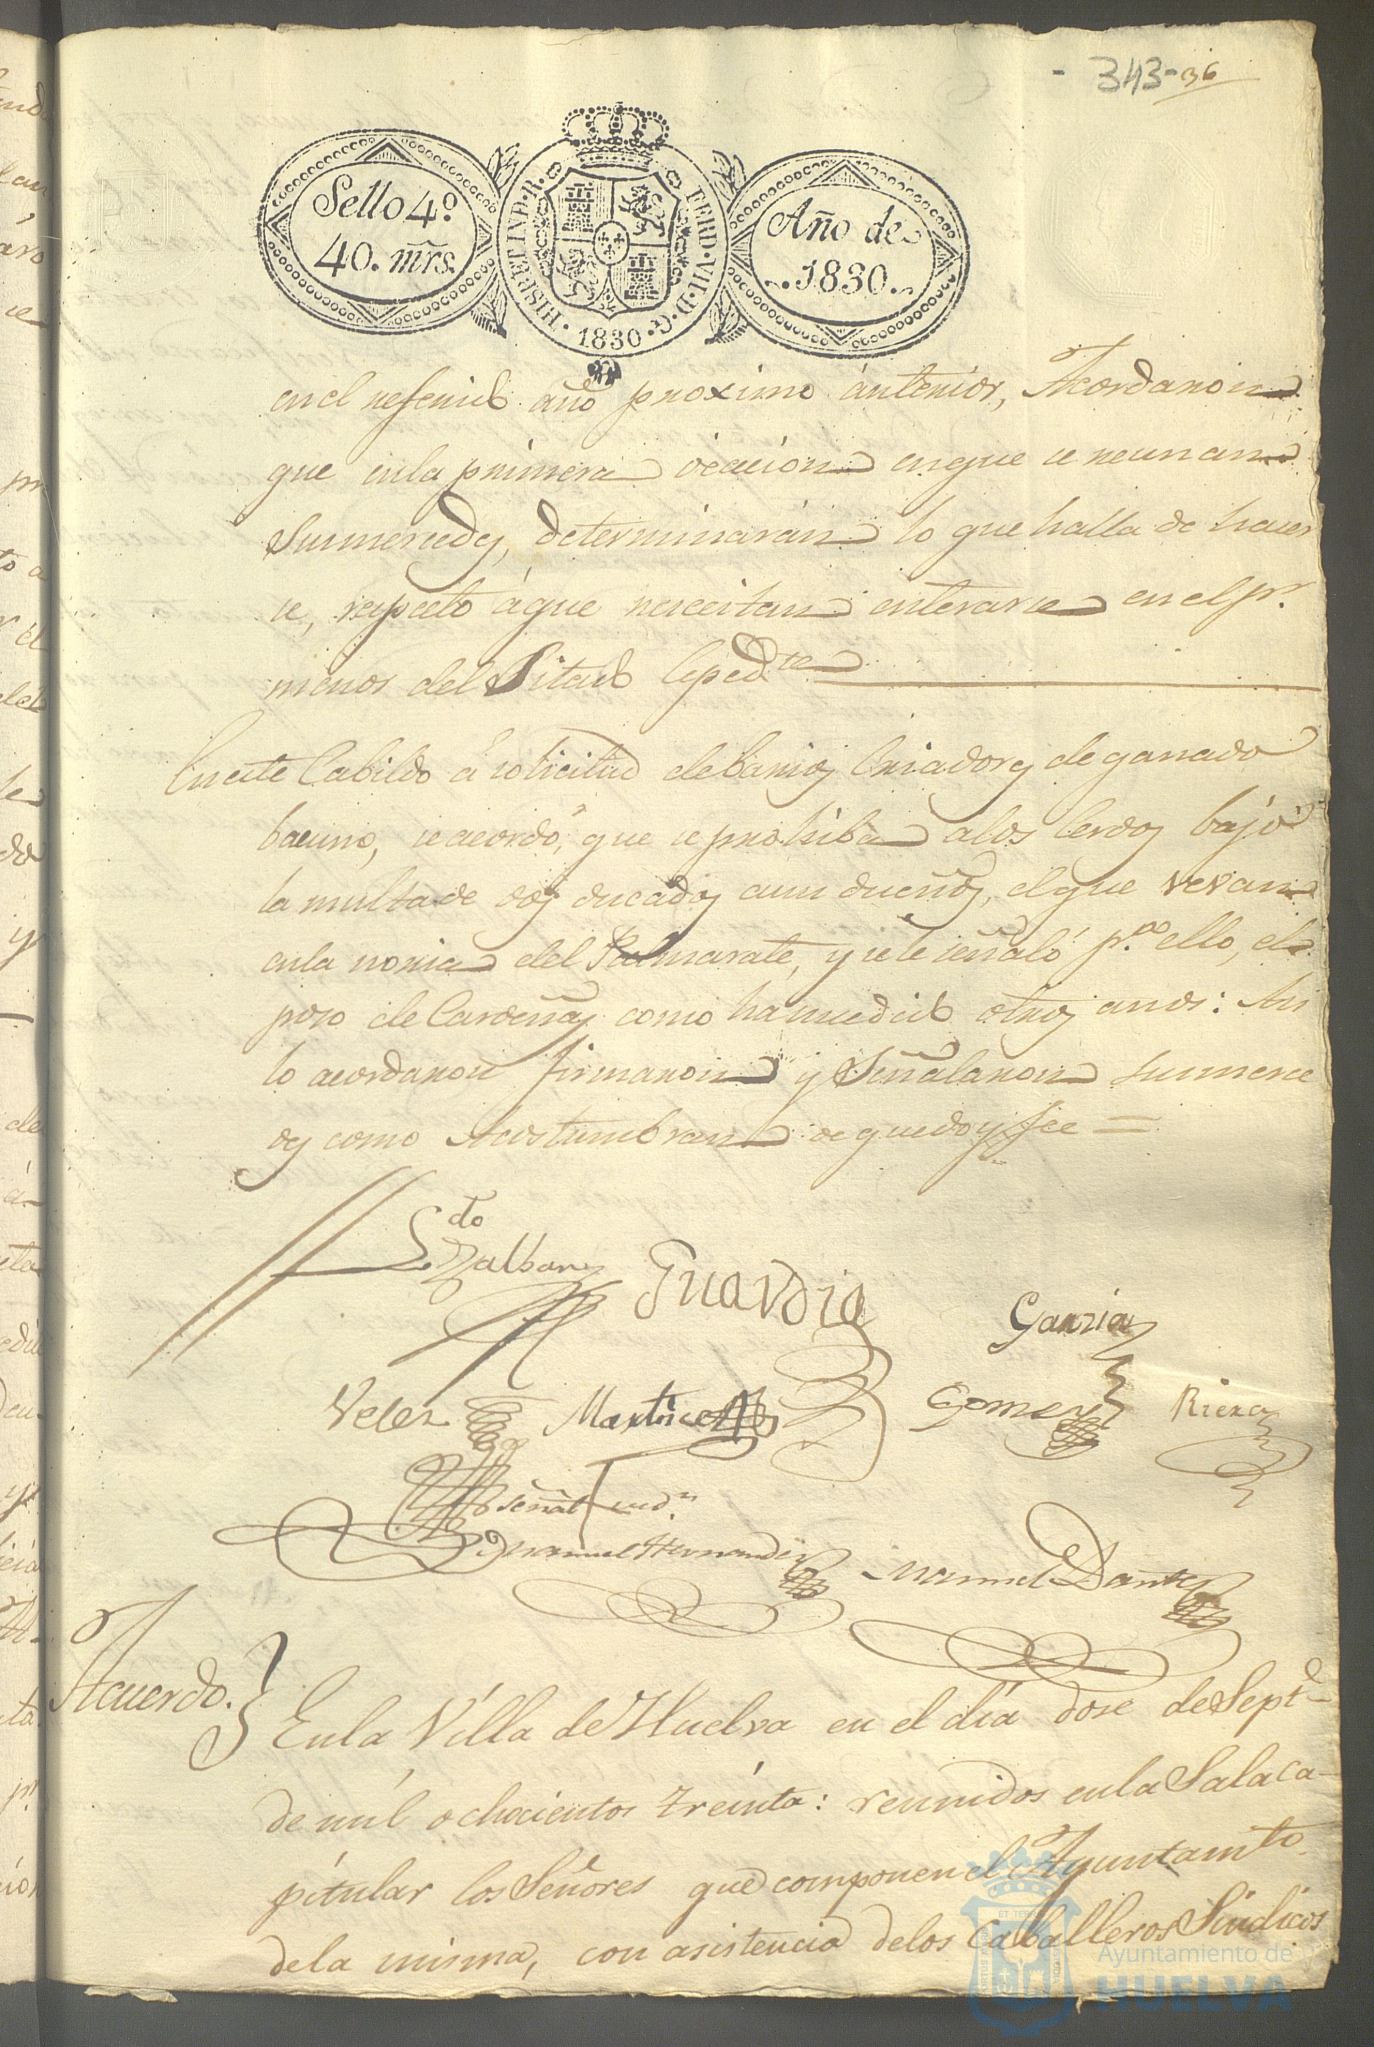 - 343 - 36
Sello 4º
40. mrs.
HISP. ET IND. R.
FERD. VII. D. G.
1830
Año de
1830.
en el referido año proximo anterior, Acordaron
que en la primera ocacion en que se reunan
Sus mercedes, determinarán lo que halla de hacer
se, respecto á que necesitan enterarse en el pr.
menor del Citado Expedte
En este Cabildo á solicitud de barios Criadores de ganado
bacuno, se acordó, que se prohiba a los Cerdos bajo
la multa de dos ducados a sus dueños, el que vevan
en la noria del Salmarate, y se le señaló pª ello, el
poso de Cardeñas como ha sucedido otros años: Asi
lo acordaron firmaron y Señalaron sus merce
des como Acostumbran de que doy fee =
Ldo
Zalbans
Guardia
Garzia
Velez
Martinez
Gomez
Riera
Señal
Manuel Hernandez
Manuel Dante
Acuerdo.
En la Villa de Huelva en el día dose de Septe
de mil ochocientos treinta: reunidos en la Sala ca-
pitular los Señores que componen el Ayuntamto
de la misma, con asistencia de los Caballeros Sindicos
Ayuntamiento de
HUELVA